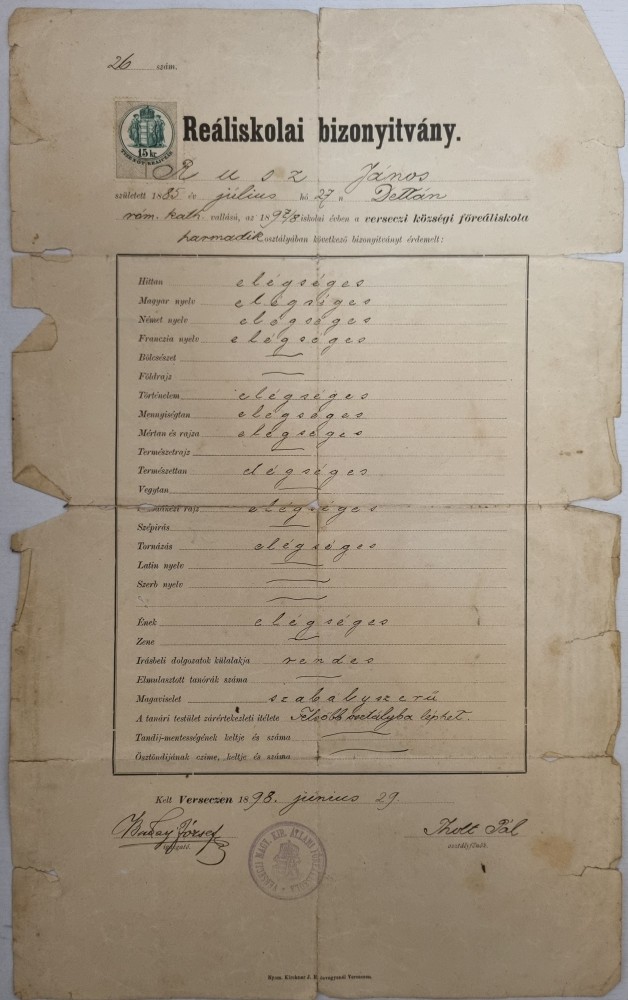 26 szám.
15 kr.
Reáliskolai bizonyitvány.
Rusz János
született 1885 év július hó 27 n Dettán
róm. kath. vallású, az 1897/8 iskolai évben a verseczi községi főreáliskola
harmadik osztályában következő bizonyitványt érdemelt:
Hittan elégséges
Magyar nyelv elégséges
Német nyelv elégséges
Franczia nyelv elégséges
Bölcsészet —
Földrajz —
Történelem elégséges
Mennyiségtan elégséges
Mértan és rajza elégséges
Természetrajz —
Természettan elégséges
Vegytan —
rajz elégséges
Szépirás —
Tornázás elégséges
Latin nyelv —
Szerb nyelv —
Ének elégséges
Zene —
Irásbeli dolgozatok külalakja rendes
Elmulasztott tanórák száma —
Magaviselet szabályszerű
A tanári testület zárértekezleti itélete Felsőbb osztályba léphet.
Tandij-mentességének keltje és száma —
Ösztöndijának czime, keltje és száma —
Kelt Verseczen 1898. június 29.
József
igazgató.
Thott Pál
osztályfőnök.
VERSECZI MAGY. KIR. ÁLLAMI